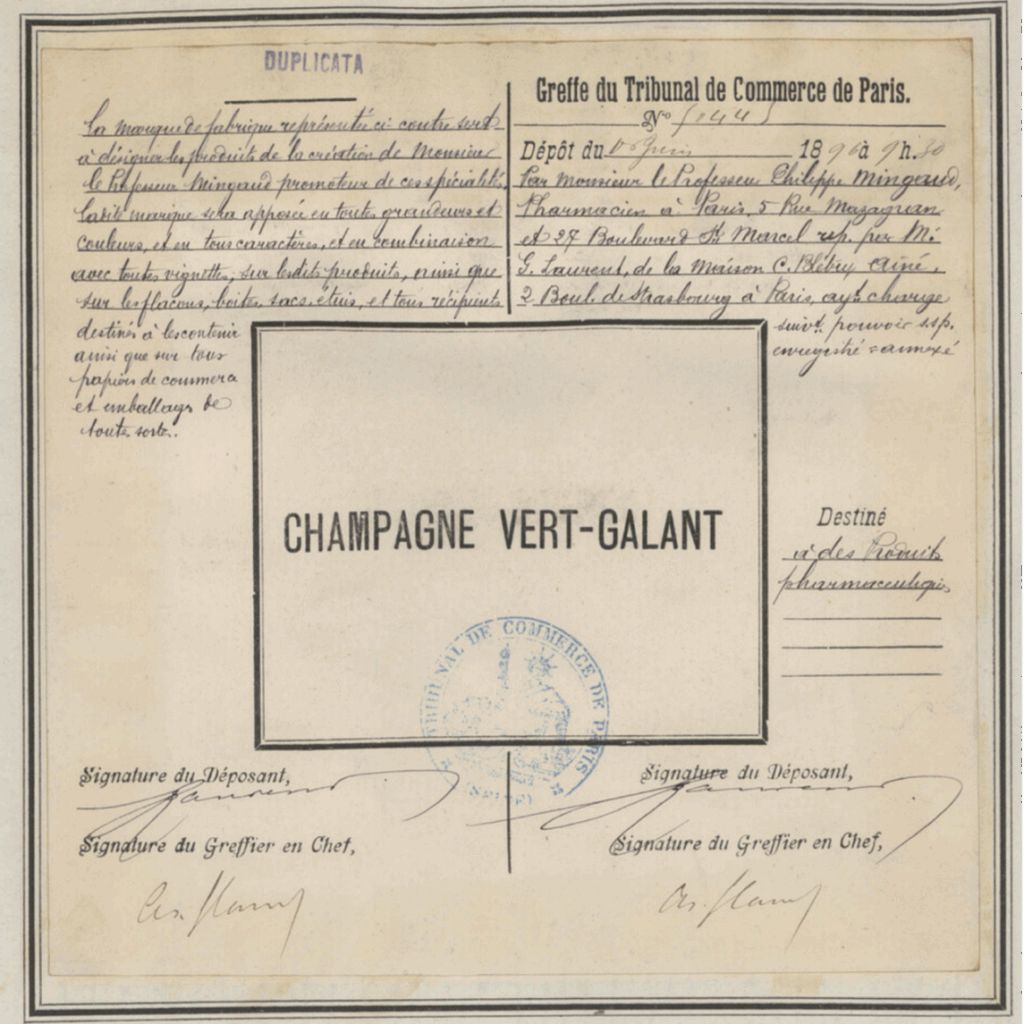 DUPLICATA
La marque de fabrique représentée ci-contre sert
à désigner les produits de la création de Monsieur
le Professeur Mingaud promoteur de ces spécialités,
ladite marque sera apposée en toutes grandeurs et
couleurs, et en tous caractères, et en combinaison
avec toutes vignettes, sur lesdits produits, ainsi que
sur les flacons, boîtes, sacs, étuis, et tous récipients
destinés à les contenir
ainsi que sur tous
papiers de commerce
et emballages de
toutes sortes.
Greffe du Tribunal de Commerce de Paris.
N°
Dépôt du Juin 1896 à 9 h. 30
Par Monsieur le Professeur Philippe Mingaud,
Pharmacien à Paris, 5 Rue Mazagran
et 27 Boulevard St Marcel rep. par Mr
G. Laurent, de la Maison C. Blétry Aîné,
2 Boul. de Strasbourg à Paris, ayt charge
suivt pouvoir s.s.p.
enregistré & annexé
CHAMPAGNE VERT-GALANT
Destiné
à des Produits
pharmaceutiques
TRIBUNAL DE COMMERCE DE PARIS
(SEINE)
Signature du Déposant,
Laurent
Signature du Greffier en Chef,
Signature du Déposant,
Laurent
Signature du Greffier en Chef,